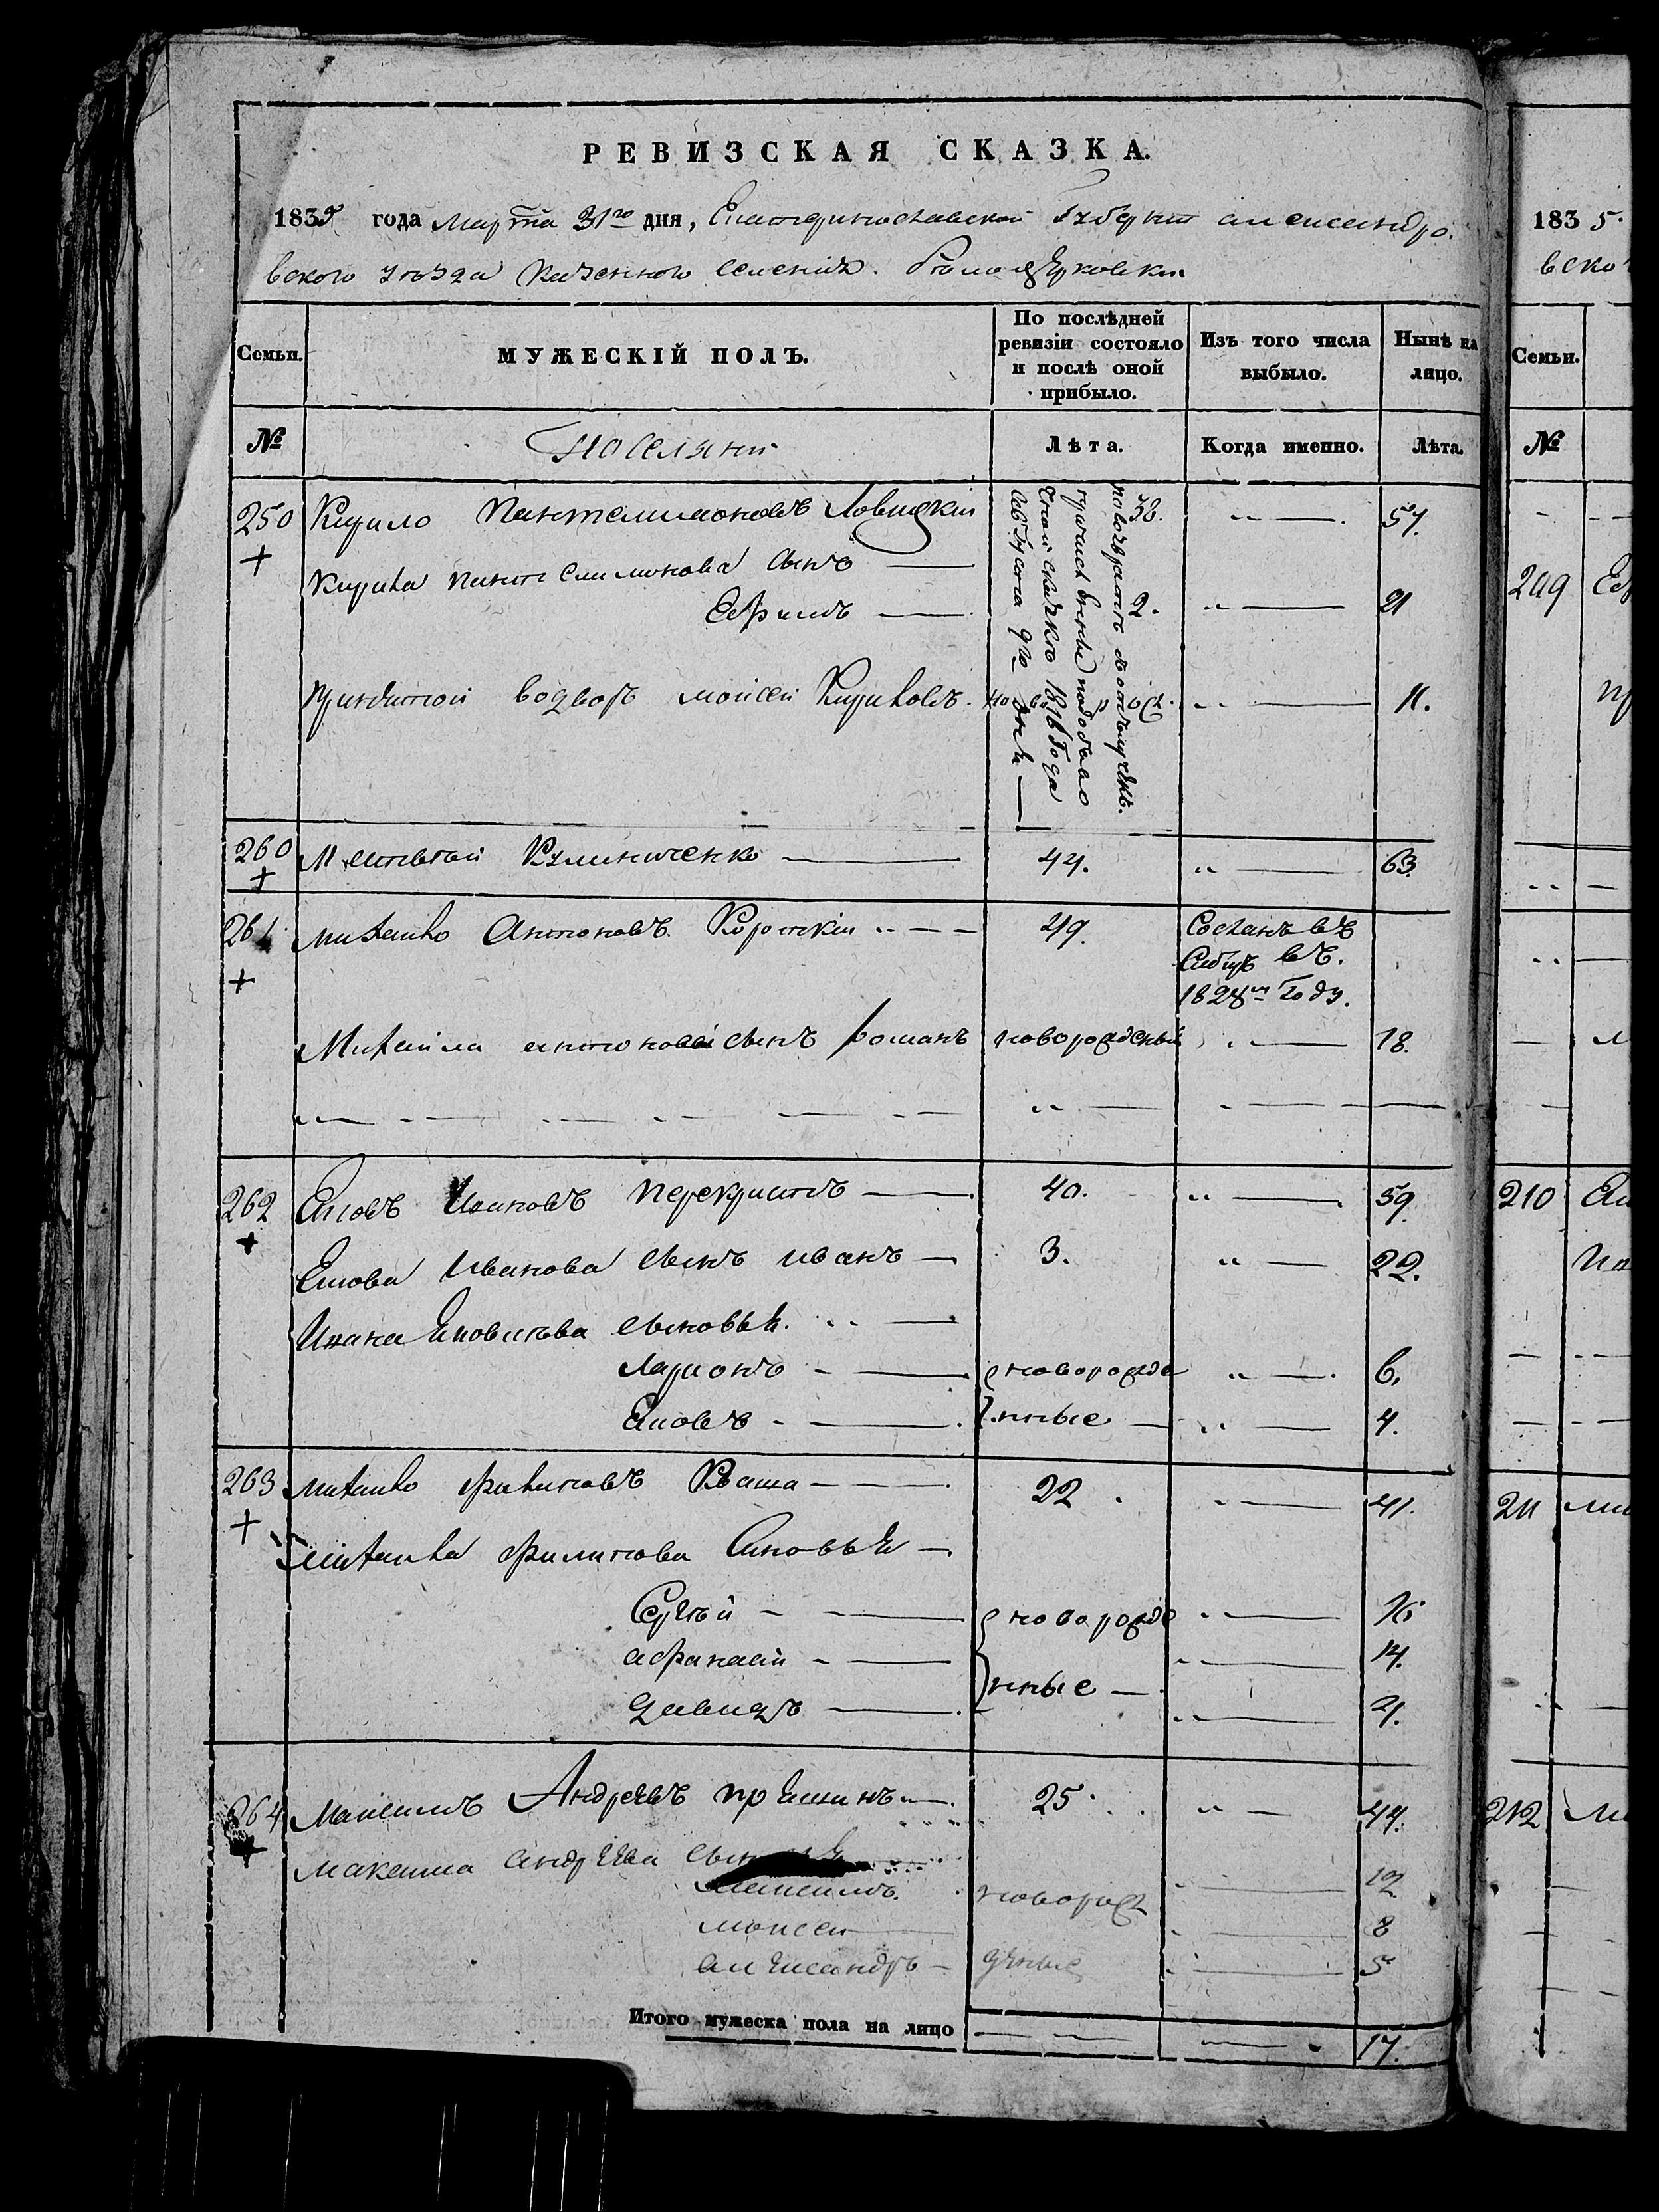 РЕВИЗСКАЯ СКАЗКА.
1835 года Марта 31го дня, Екатеринославской Губерни александро.
вского уезда Казенного Селения.
Семьи. МУЖЕСКІЙ ПОЛЪ. По послѣдней ревизіи состояло и послѣ оной прибыло. Изъ того числа выбыло. Нынѣ на лицо.
№ Поселяни Лѣта. Когда именно. Лѣта.
250 Кирило Пантелимоновъ Ловицкій 38. 57.
Кирила Пантелимонова сынъ
Ефимъ 2. 21
водворъ моисей Кириловъ. 11.
1816 Года
260 Матвей Кулиниченко 44. 63.
261 михайло Антоновъ. Короткій 49. Сосланъ въ
Сибирь въ.
1828м Году.
Михайла антонова сынъ романъ новорожденый 18.
262 Яковъ Ивановъ перекристъ 40. 59.
Якова Иванова сынъ иванъ 3. 22.
Ивана Яковлева сыновья.
Ларионъ новорожде 6.
Яковъ нные 4.
263 михайло филиповъ Кваша 22. 41.
михайла филипова Сыновья
Сергей новорожде 16
афанасий 14.
давидъ нные 4.
264 Максимъ Андреевъ пряшинъ 25. 44.
максима андреева
максимъ. новорож 12
моисей 8
александръ дѣные 5
Итого мужеска пола на лицо 17.
183 5.
веко
Семьи.
№
209 Еф
пр
210 Як
Ив
211 ми
212 Ма